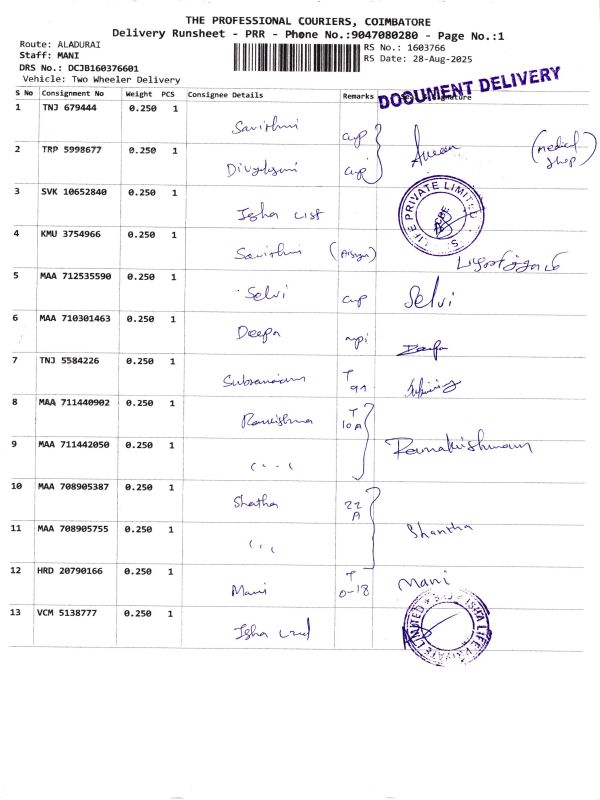 THE PROFESSIONAL COURIERS, COIMBATORE
Delivery Runsheet - PRR - Phone No.:9047080280 - Page No.:1
Route: ALADURAI
RS No.: 1603766
Staff: MANI
RS Date: 28-Aug-2025
DRS No.: DCJB160376601
Vehicle: Two Wheeler Delivery
DOCUMENT DELIVERY
S No Consignment No Weight PCS Consignee Details Remarks
1 TNJ 679444 0.250 1
(medical shop)
2 TRP 5998677 0.250 1
3 SVK 10652840 0.250 1 Isha
LIFE PRIVATE LIMITED
4 KMU 3754966 0.250 1
5 MAA 712535590 0.250 1 Selvi Selvi
6 MAA 710301463 0.250 1 Deepa
7 TNJ 5584226 0.250 1 T 9A
8 MAA 711440902 0.250 1 T 10A
Ramakrishnan
9 MAA 711442050 0.250 1
10 MAA 708905387 0.250 1 Shatha 22 A
Shantha
11 MAA 708905755 0.250 1
12 HRD 20790166 0.250 1 Mani T 0-18 Mani
13 VCM 5138777 0.250 1 Isha
ISHA LIFE PRIVATE LIMITED